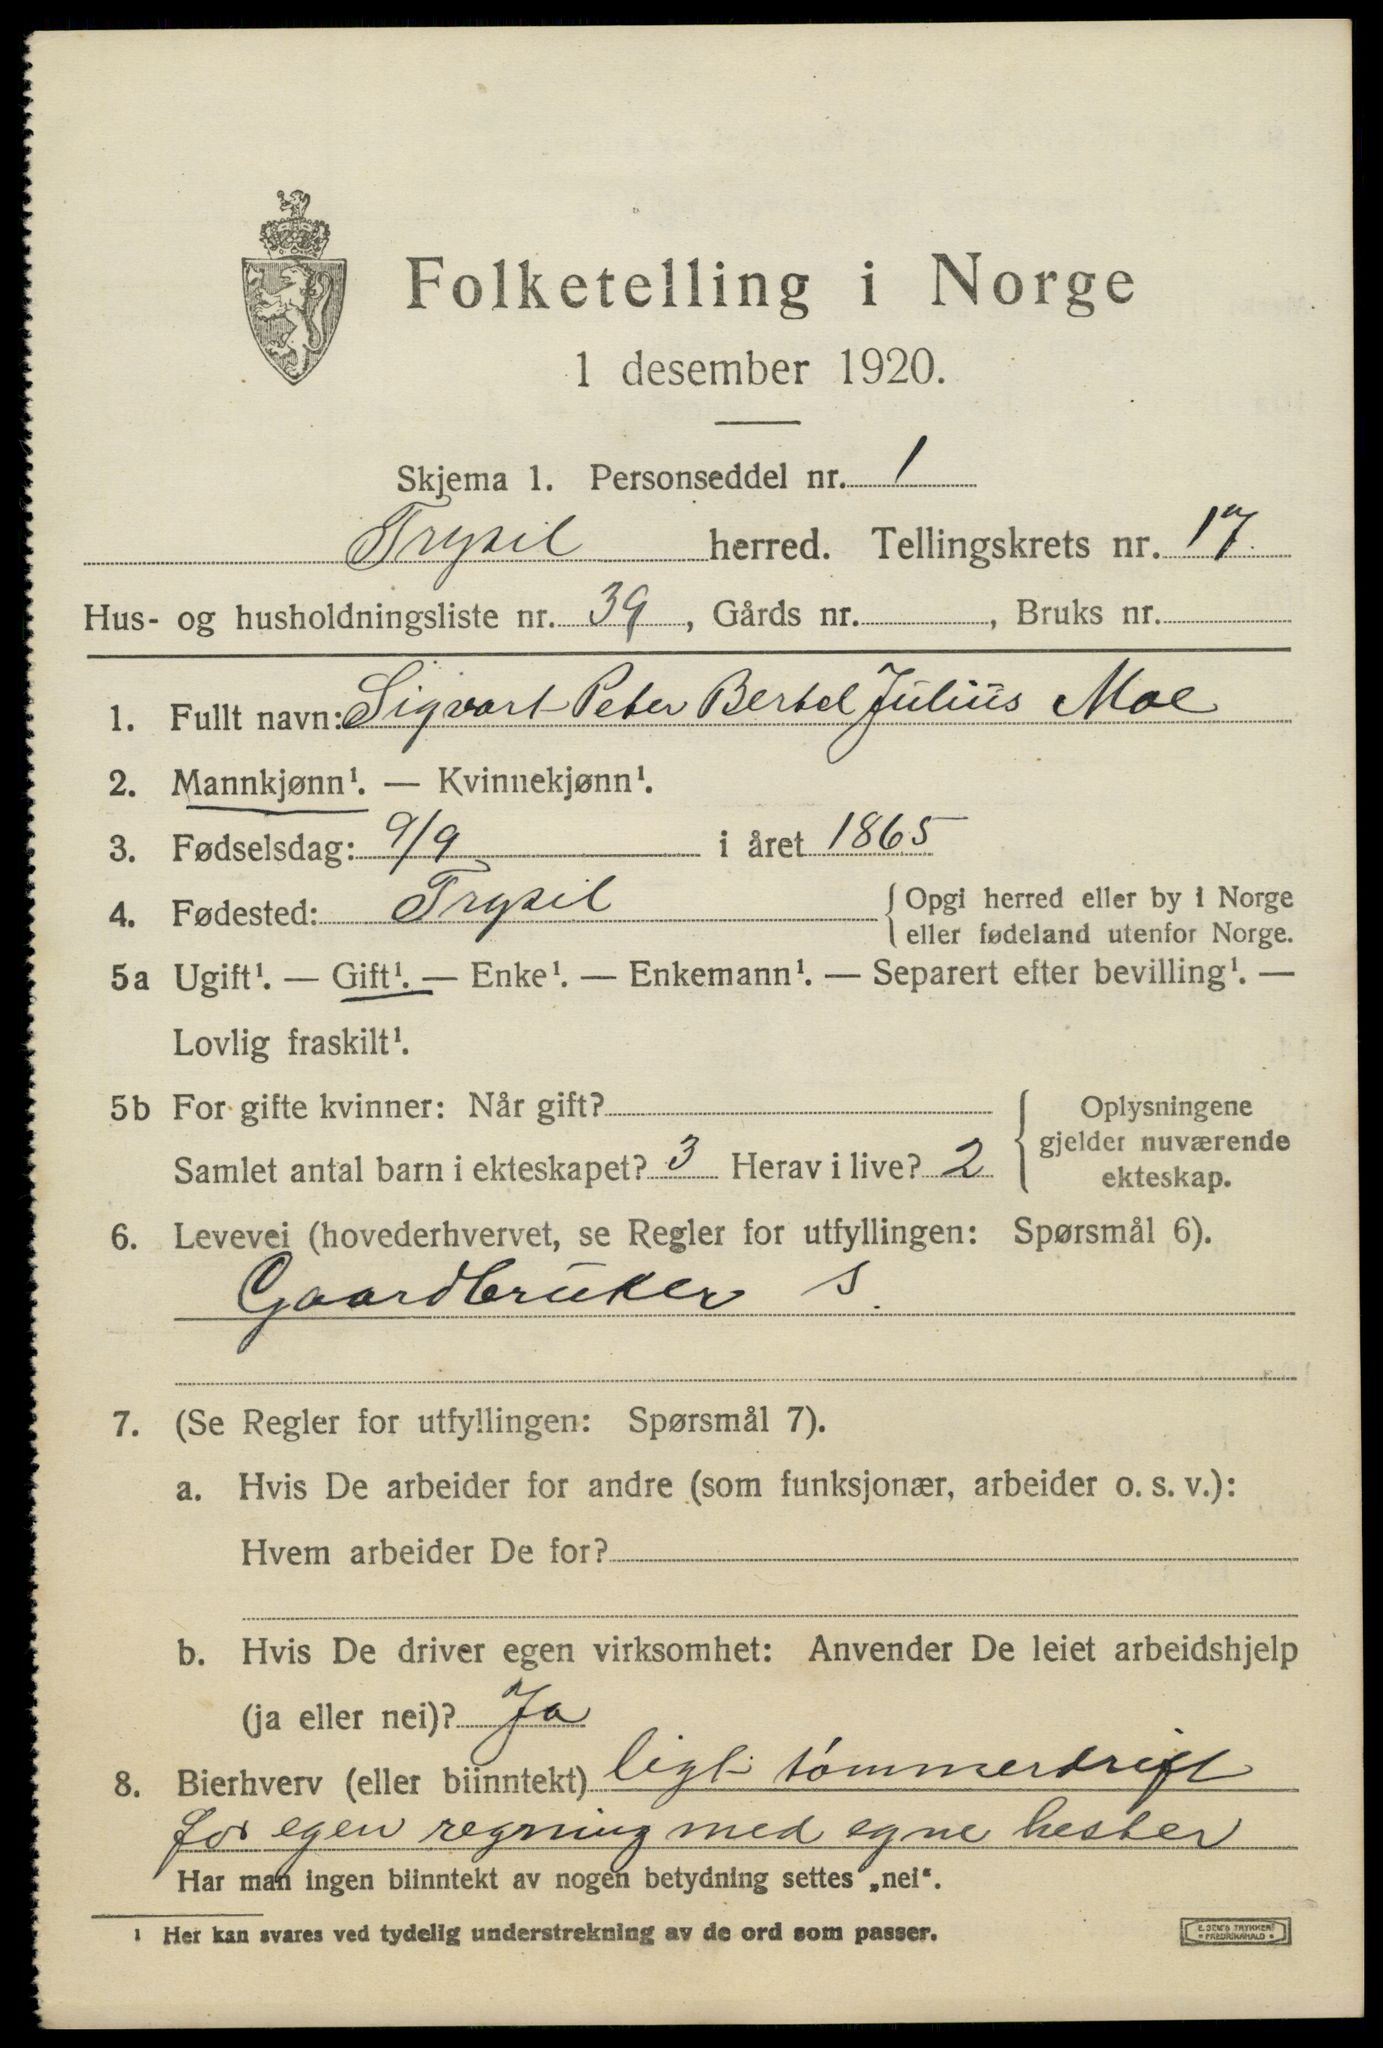 Folketelling i Norge
1 desember 1920.
Skjema 1. Personseddel nr. 1
Trysil herred. Tellingskrets nr. 17
Hus- og husholdningsliste nr. 39, Gårds nr. , Bruks nr.
1. Fullt navn: Sigvart Peter Bertel Julius Moe
2. Mannkjønn¹. — Kvinnekjønn¹.
3. Fødselsdag: 9/9 i året 1865
4. Fødested: Trysil {Opgi herred eller by i Norge
eller fødeland utenfor Norge.
5a Ugift¹. — Gift¹. — Enke¹. — Enkemann¹. — Separert efter bevilling¹. —
Lovlig fraskilt¹.
5b For gifte kvinner: Når gift? { Oplysningene
gjelder nuværende
Samlet antal barn i ekteskapet? 3 Herav i live? 2 ekteskap.
6. Levevei (hovederhvervet, se Regler for utfyllingen: Spørsmål 6).
Gaardbruker s.
7. (Se Regler for utfyllingen: Spørsmål 7).
a. Hvis De arbeider for andre (som funksjonær, arbeider o. s. v.):
Hvem arbeider De for?
b. Hvis De driver egen virksomhet: Anvender De leiet arbeidshjelp
(ja eller nei)? Ja
8. Bierhverv (eller biinntekt) ligt tømmerdrift
for egen regning med egne hester
Har man ingen biinntekt av nogen betydning settes „nei“.
¹ Her kan svares ved tydelig understrekning av de ord som passer.
E. SEM'S TRYKKERI
FREDRIKSHALD